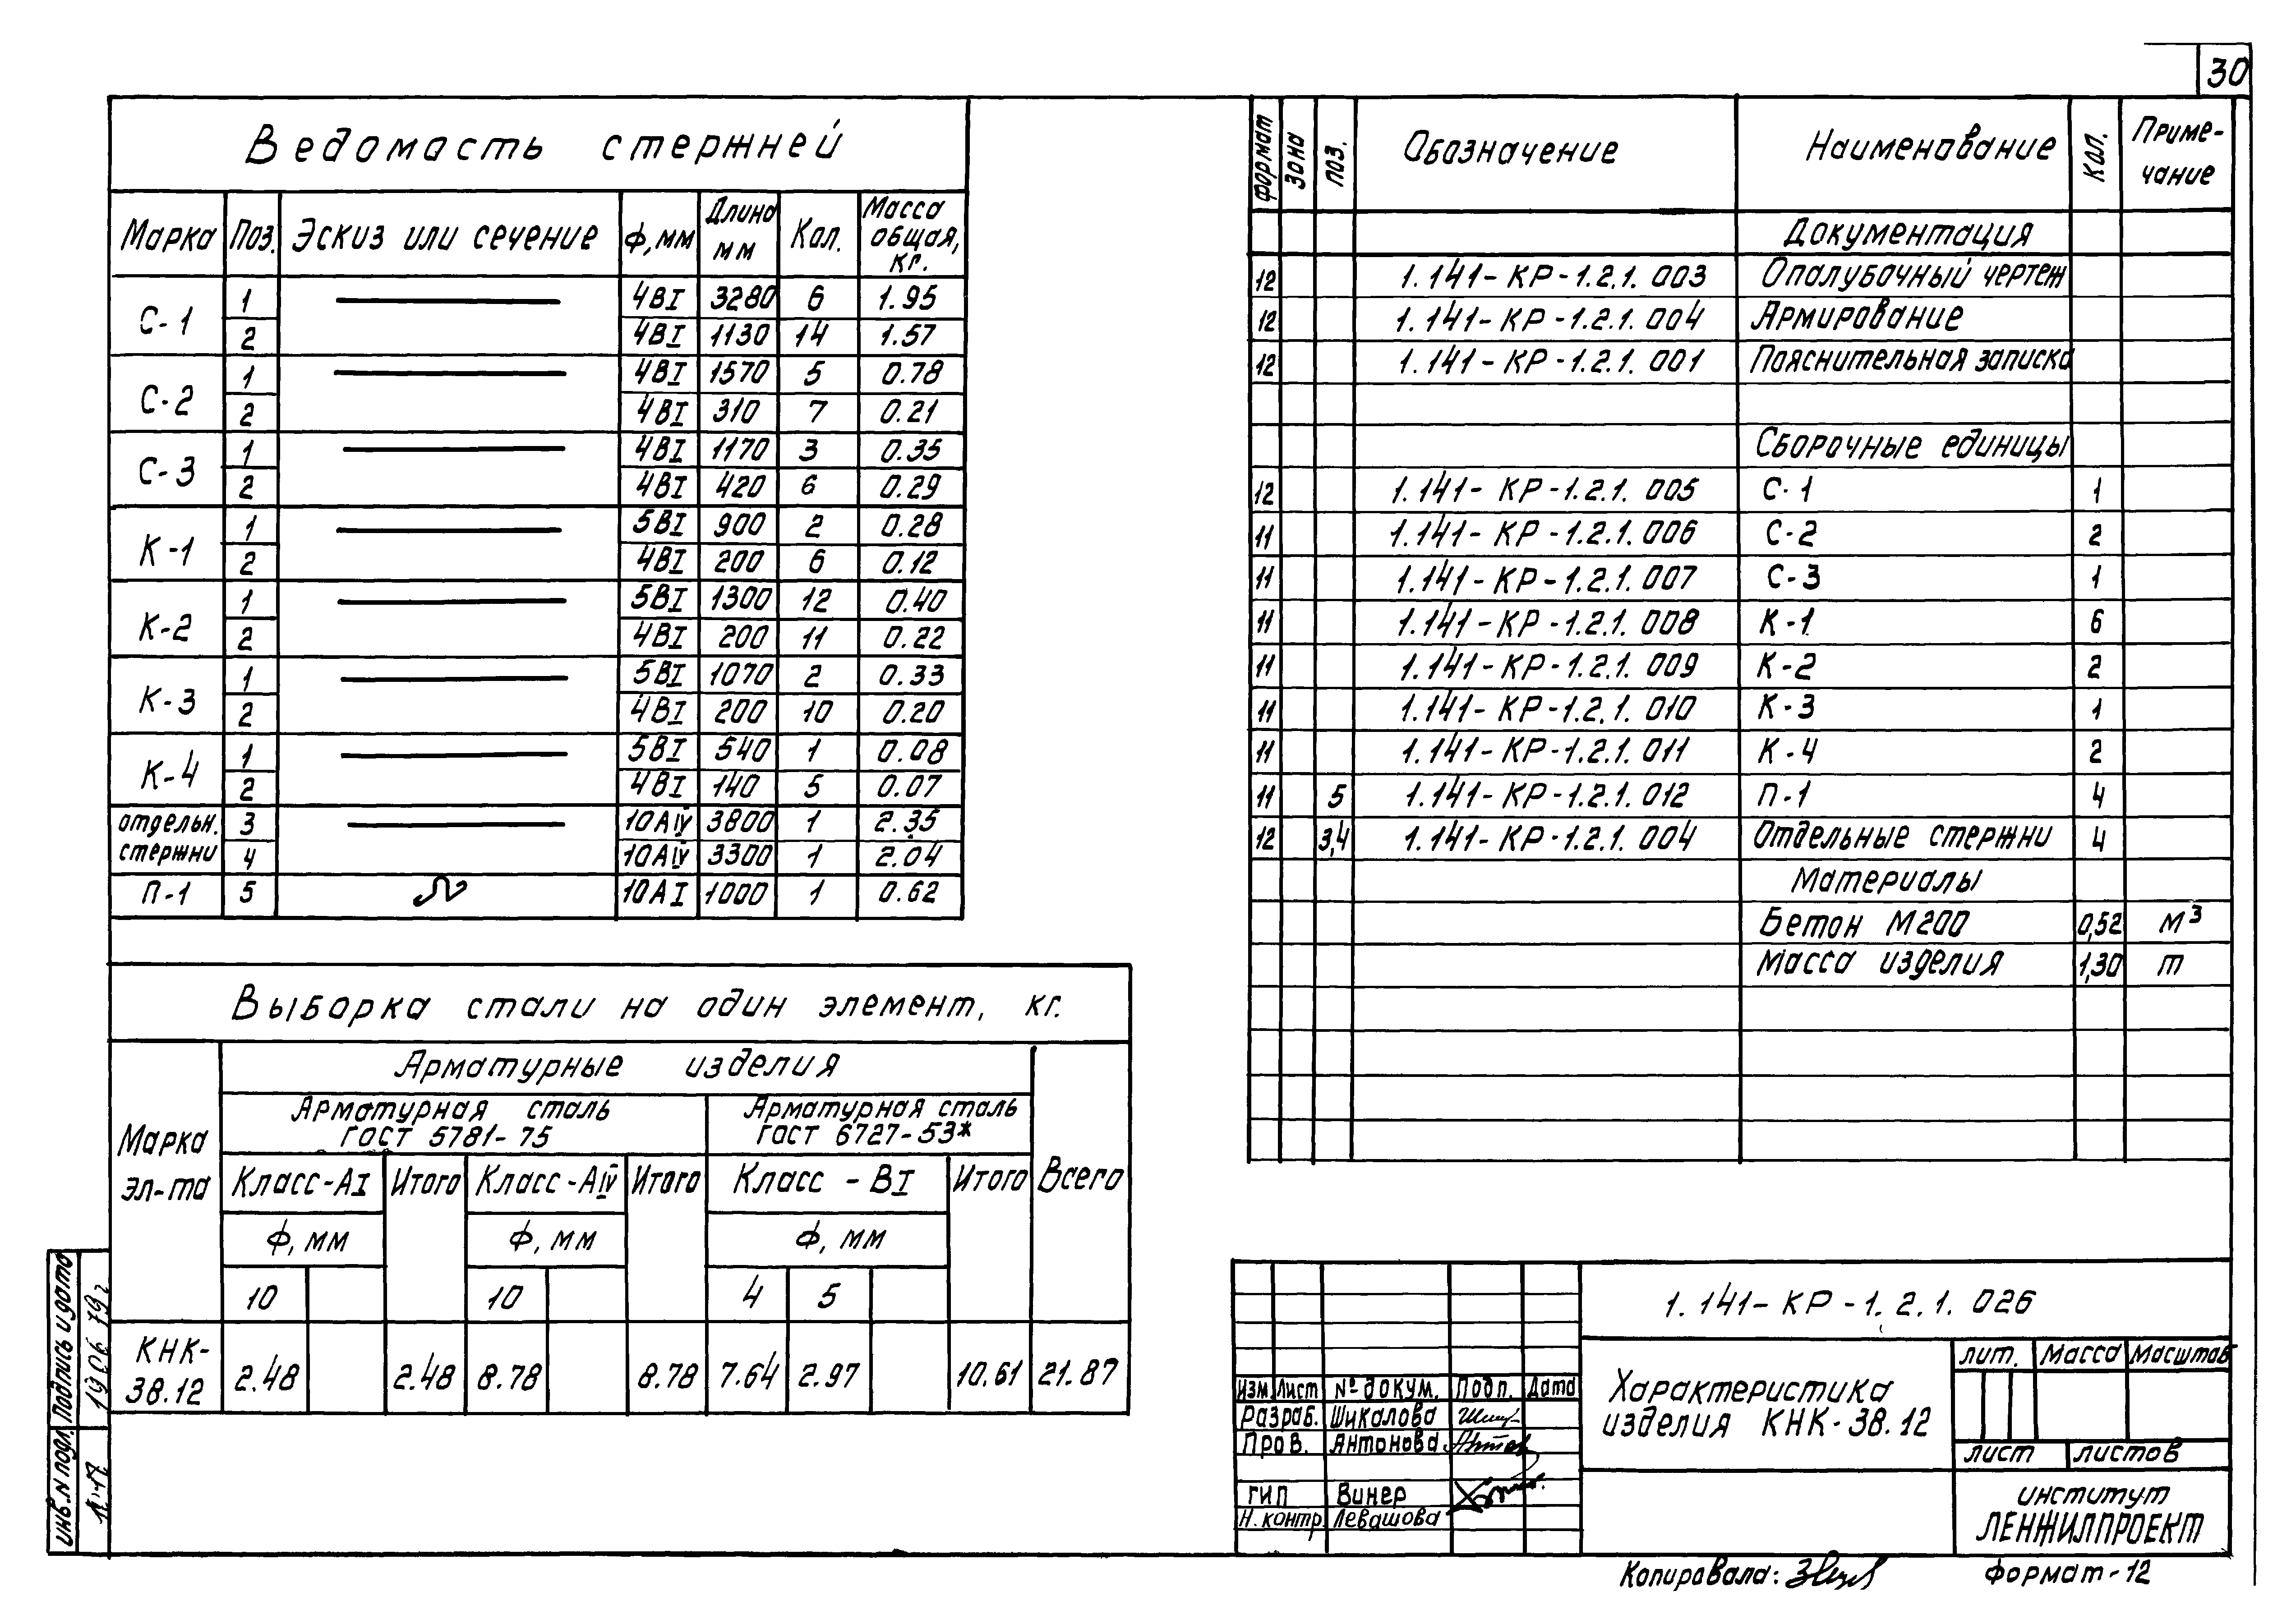 30
Ведомасть стержней
Марка Поз. Эскиз или сечение ф, мм Длина мм Кол. Масса общая, кг.
С-1 1 4ВI 3280 6 1.95
2 4ВI 1130 14 1.57
С-2 1 4ВI 1570 5 0.78
2 4ВI 310 7 0.21
С-3 1 4ВI 1170 3 0.35
2 4ВI 420 6 0.29
К-1 1 5ВI 900 2 0.28
2 4ВI 200 6 0.12
К-2 1 5ВI 1300 12 0.40
2 4ВI 200 11 0.22
К-3 1 5ВI 1070 2 0.33
2 4ВI 200 10 0.20
К-4 1 5ВI 540 1 0.08
2 4ВI 140 5 0.07
отдельн. 3 10АIV 3800 1 2.35
стержни 4 10АIV 3300 1 2.04
П-1 5 10АI 1000 1 0.62
Выборка стали на один элемент, кг.
Марка эл-та
Арматурные изделия
Всего
Арматурная сталь ГОСТ 5781-75
Арматурная сталь ГОСТ 6727-53*
Класс-АI Итого Класс-АIV Итого Класс - ВI Итого
ф, мм ф, мм ф, мм
10 10 4 5
КНК-38.12 2.48 2.48 8.78 8.78 7.64 2.97 10.61 21.87
формат Зона поз. Обозначение Наименование Кол. Приме-чание
Документация
12 1.141-КР-1.2.1. 003 Опалубочный чертеж
12 1.141-КР-1.2.1. 004 Армирование
12 1.141-КР-1.2.1. 001 Пояснительная записка
Сборочные единицы
12 1.141-КР-1.2.1. 005 С-1 1
11 1.141-КР-1.2.1. 006 С-2 2
11 1.141-КР-1.2.1. 007 С-3 1
11 1.141-КР-1.2.1. 008 К-1 6
11 1.141-КР-1.2.1. 009 К-2 2
11 1.141-КР-1.2.1. 010 К-3 1
11 1.141-КР-1.2.1. 011 К-4 2
11 5 1.141-КР-1.2.1. 012 П-1 4
12 3,4 1.141-КР-1.2.1. 004 Отдельные стержни 4
Материалы
Бетон М200 0,52 м³
Масса изделия 1,30 т
1.141-КР-1.2.1. 026
Характеристика
изделия КНК-38.12
лит. Масса Масштаб
лист листов
институт
ЛЕНЖИЛПРОЕКТ
Изм. Лист № докум. Подп. Дата
Разраб. Шикалова
Пров. Антонова
ГИП Винер
Н. контр. Левашова
Копировала:
формат-12
Подпись и дата
19 06 79г
Инв. N подл.